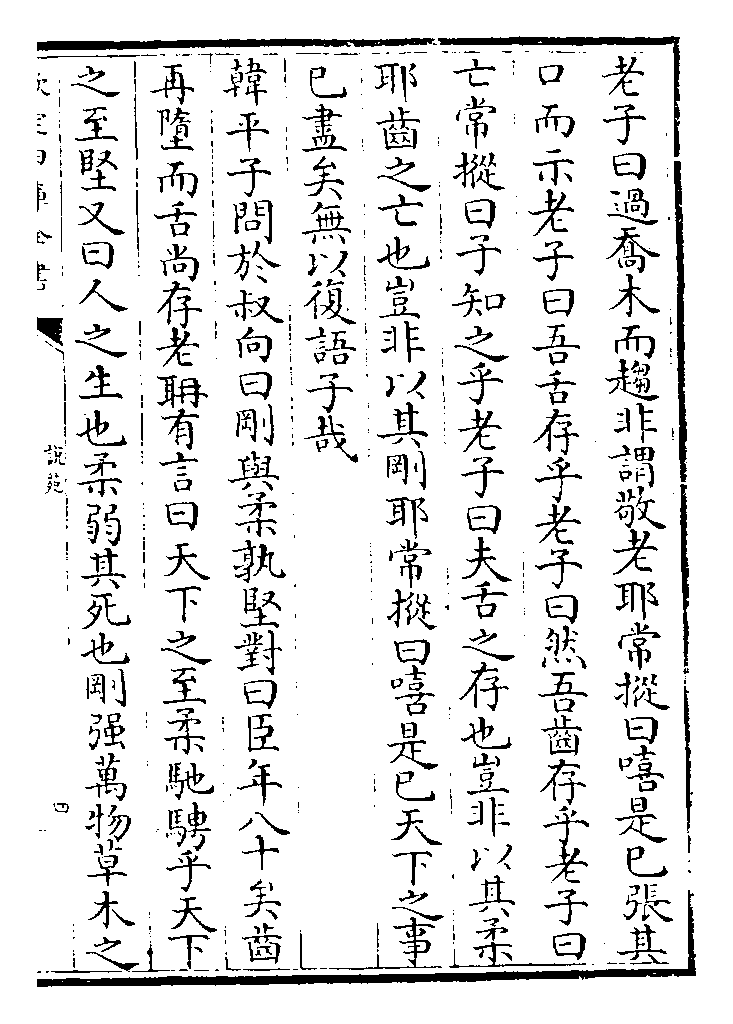 老子曰過喬木而趨非謂敬老耶常摐曰嘻是已張其
口而示老子曰吾舌存乎老子曰然吾齒存乎老子曰
亡常摐曰子知之乎老子曰夫舌之存也豈非以其柔
耶齒之亡也豈非以其剛耶常摐曰嘻是已天下之事
已盡矣無以復語子哉
韓平子問於叔向曰剛與柔孰堅對曰臣年八十矣齒
再墮而舌尚存老聃有言曰天下之至柔馳騁乎天下
之至堅又曰人之生也柔弱其死也剛强萬物草木之
欽定四庫全書
說苑
四